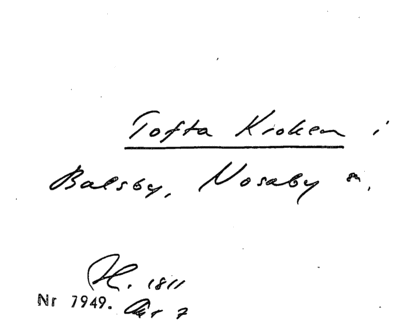 Tofta Kroken i
Balsby, Nosaby sn.
H. 1811
Nr 7949. Akt 7